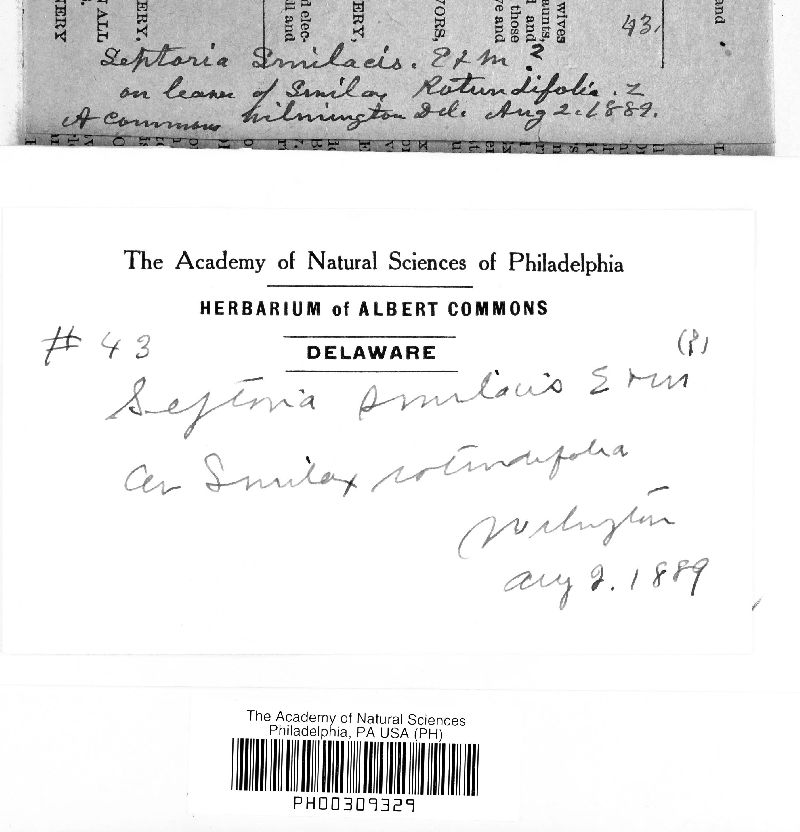 43.
Septoria Smilacis. E & M ?
on leaves of Smilax Rotundifolia. L
A Commons Wilmington Del. Aug 2. 1889.
The Academy of Natural Sciences of Philadelphia
HERBARIUM of ALBERT COMMONS
# 43
DELAWARE
(?)
Septoria smilacis E & M
on Smilax rotundifolia
Wilmington
Aug 2. 1889
The Academy of Natural Sciences
Philadelphia, PA USA (PH)
PH00309329